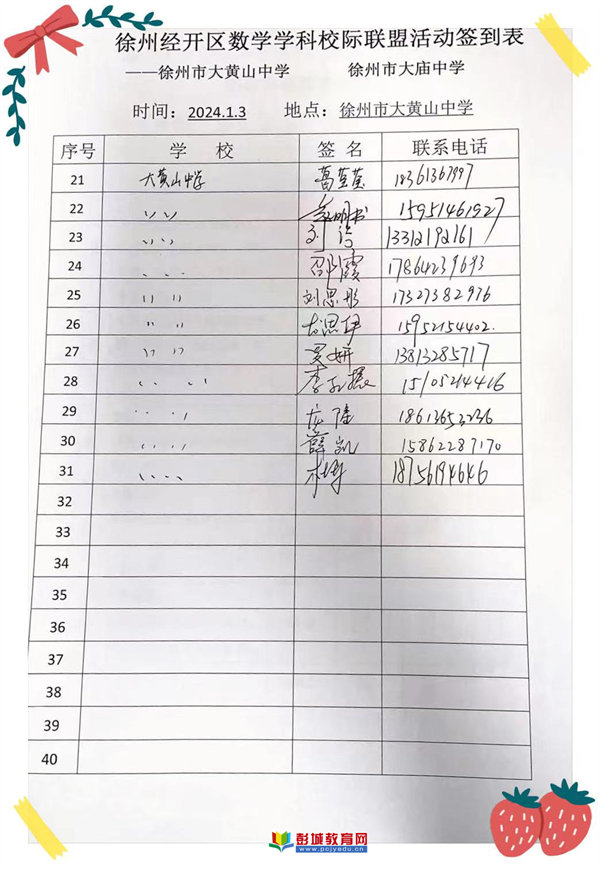 徐州经开区数学学科校际联盟活动签到表
——徐州市大黄山中学 徐州市大庙中学
时间：2024.1.3 地点：徐州市大黄山中学
序号 学 校 签 名 联系电话
21 大黄山中学 葛莹莹 18361367997
22 〃 15951461927
23 〃 刘 13312192161
24 〃 邵霞 17864239693
25 〃 刘思彤 17327382976
26 〃 15952154402
27 〃 妍 13813285717
28 〃 李 振 15105214416
29 〃 陆 18613653236
30 〃 薛凯 15862287170
31 〃 18756194646
32
33
34
35
36
37
38
39
40
彭城教育网
www.pcjyedu.cn